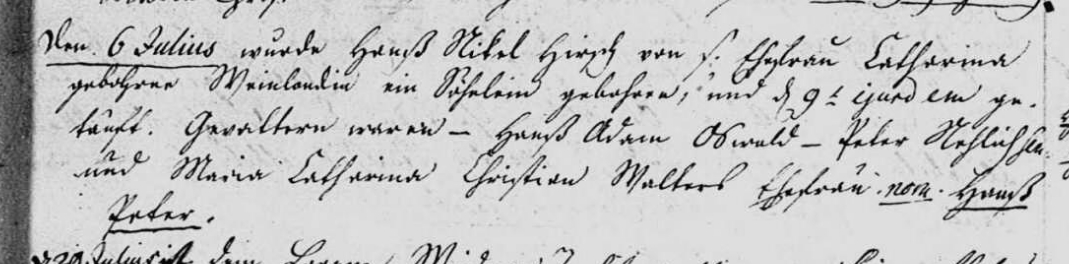 Den 6 Julius wurde Hanß Nikel Hirsch von s. Ehefrau Catharina
gebohrne Weinlandin ein Söhnlein gebohren, und d 9t ejusdem ge-
täuft. Gevattern waren – Hanß Adam Oswald – Peter
und Maria Catharina Christian Walters Ehefrau. nom. Hanß
Peter.
Julius ist dem